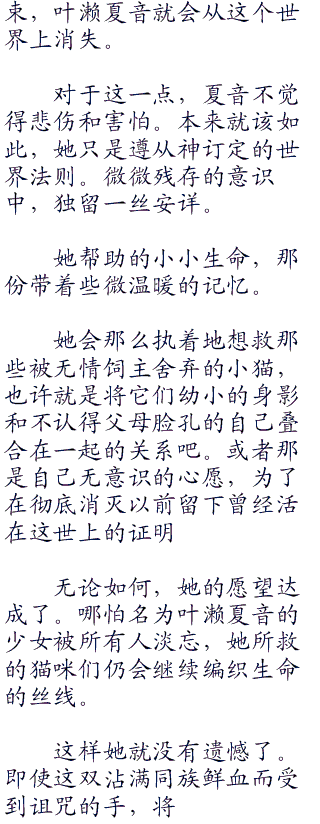 束，叶濑夏音就会从这个世
界上消失。
对于这一点，夏音不觉
得悲伤和害怕。本来就该如
此，她只是遵从神订定的世
界法则。微微残存的意识
中，独留一丝安详。
她帮助的小小生命，那
份带着些微温暖的记忆。
她会那么执着地想救那
些被无情饲主舍弃的小猫，
也许就是将它们幼小的身影
和不认得父母脸孔的自己叠
合在一起的关系吧。或者那
是自己无意识的心愿，为了
在彻底消灭以前留下曾经活
在这世上的证明
无论如何，她的愿望达
成了。哪怕名为叶濑夏音的
少女被所有人淡忘，她所救
的猫咪们仍会继续编织生命
的丝线。
这样她就没有遗憾了。
即使这双沾满同族鲜血而受
到诅咒的手，将